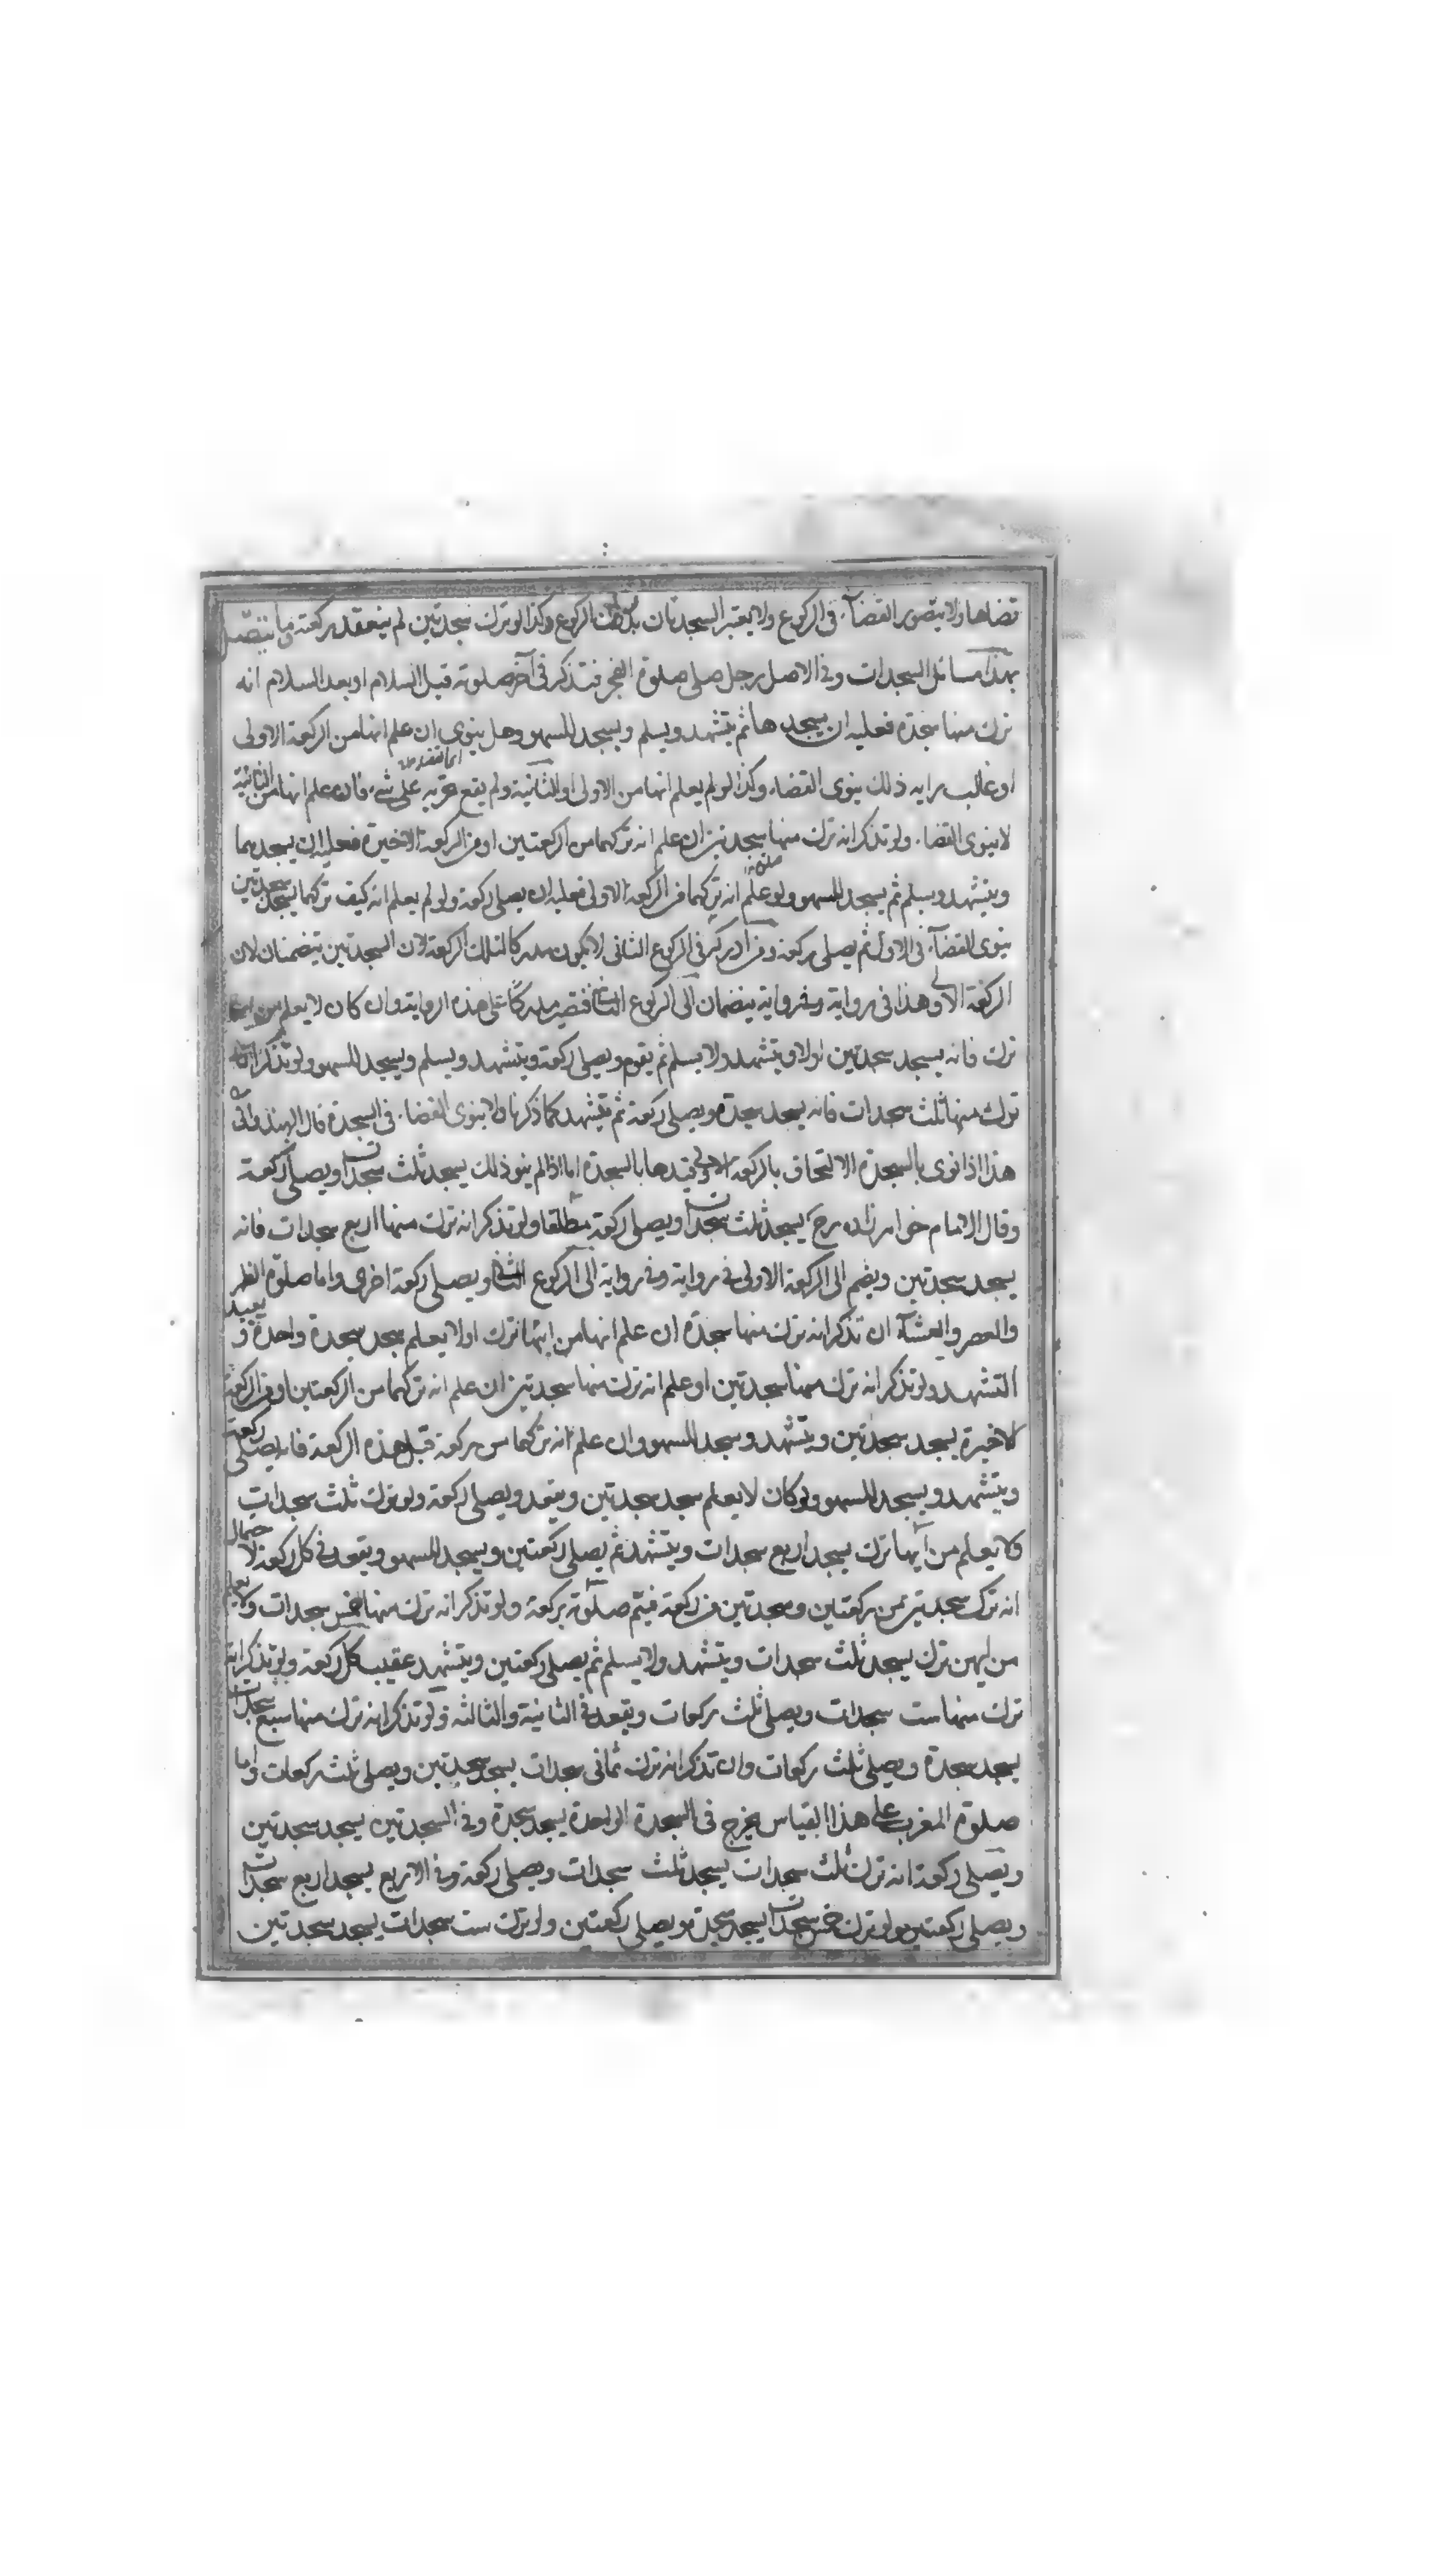 قضاها ولا يتصور القضآء فى الركوع ولا يعتبر السجدتان بدون الركوع وكذا لو ترك سجدتين لم ينعقد ركعة وما يتصل
بهذا مسائل السجدات وفى الاصل رجل صلى صلوة الفجر فتذكر فى آخر صلوته قبل السلام او بعد السلام انه
ترك منها سجدة فعليه ان يسجدها ثم يتشهد ويسلم ويسجد للسهو وهل ينوى ان علم انها من الركعة الاولى
او غالب رايه ذلك ينوى القضاء وكذا لو لم يعلم انها من الاولى او الثانية ولم يقع تحريه على شىء فان علم انها من الثانية
لا ينوى القضاء ولو تذكر انه ترك منها سجدتين ان علم انه تركهما من الركعتين او من الركعة الاخيرة فعليه ان يسجدهما
ويتشهد ويسلم ثم يسجد للسهو ولو علم انه تركهما من الركعة الاولى فعليه ان يصلى ركعة ولو لم يعلم انه كيف تركهما يسجد سجدتين
ينوى القضآء فى الاولى ثم يصلى ركعة ومن ادركه فى الركوع الثانى لا يكون مدركا لتلك الركعة لان السجدتين يتضمنان لان
الركعة الاولى وهذا فى رواية وفى رواية ينضمان الى الركوع الثانى فتصير مدركا على هذه الرواية وان كان لا يعلم من ايهما
ترك فانه يسجد سجدتين اولا ويتشهد ولا يسلم ثم يقوم ويصلى ركعة ويتشهد ويسلم ويسجد للسهو ولو تذكر انه
ترك منها ثلث سجدات فانه يسجد سجدة ويصلى ركعة ثم يتشهد كما ذكرنا ولا ينوى القضاء فى السجدة قال الهندوانى
هذا اذا نوى بالسجدة الالتحاق بالركعة الاولى قيدها بالسجدة اما اذا لم ينو ذلك يسجد ثلث سجدات ويصلى ركعة
وقال الامام خواهر زاده رح يسجد ثلث سجدات ويصلى ركعة مطلقا ولو تذكر انه ترك منها اربع سجدات فانه
يسجد سجدتين ويضم الى الركعة الاولى فى رواية وفى رواية الى الركوع الثانى ويصلى ركعة اخرى واما صلوة الظهر
والعصر والعشآء ان تذكر انه ترك منها سجدة ان علم انها من ايتها ترك او لا يعلم سجد سجدة واحدة ويعيد
التشهد ولو تذكر انه ترك منها سجدتين او علم انه ترك منها سجدتين ان علم انه تركهما من الركعتين او من الركعة
الاخيرة يسجد سجدتين ويتشهد وسجد للسهو وان علم انه تركهما من ركعة قبل هذه الركعة فانه يصلى ركعة
ويتشهد ويسجد للسهو ولو كان لا يعلم سجد سجدتين ويقعد ويصلى ركعة ولو ترك ثلث سجدات
ولا يعلم من ايها ترك يسجد اربع سجدات ويتشهد ثم يصلى ركعتين ويسجد للسهو ويقعد فى كل ركعة لاحتمال
انه ترك سجدتين من ركعتين وسجدتين من ركعة فيتم صلوته بركعة ولو تذكر انه ترك منها خمس سجدات ولا يعلم
من ايهن ترك يسجد ثلث سجدات ويتشهد ولا يسلم ثم يصلى ركعتين ويتشهد عقيب كل ركعة ولو تذكر انه
ترك منها ست سجدات ويصلى ثلث ركعات ويقعد فى الثانية والثالثه ولو تذكر انه ترك منها سبع سجدات
يسجد سجدة ويصلى ثلث ركعات وان تذكر انه ترك ثمانى سجدات يسجد سجدتين ويصلى ثلث ركعات واما
صلوة المغرب على هذا القياس يخرج فى السجدة الواحدة يسجد سجدة وفى السجدتين يسجد سجدتين
ويصلى ركعة انه ترك ثلث سجدات يسجد ثلث سجدات ويصلى ركعة وفى الاربع يسجد اربع سجدات
ويصلى ركعتين ولو ترك خمس سجدات يسجد سجدة ويصلى ركعتين ولو ترك ست سجدات يسجد سجدتين